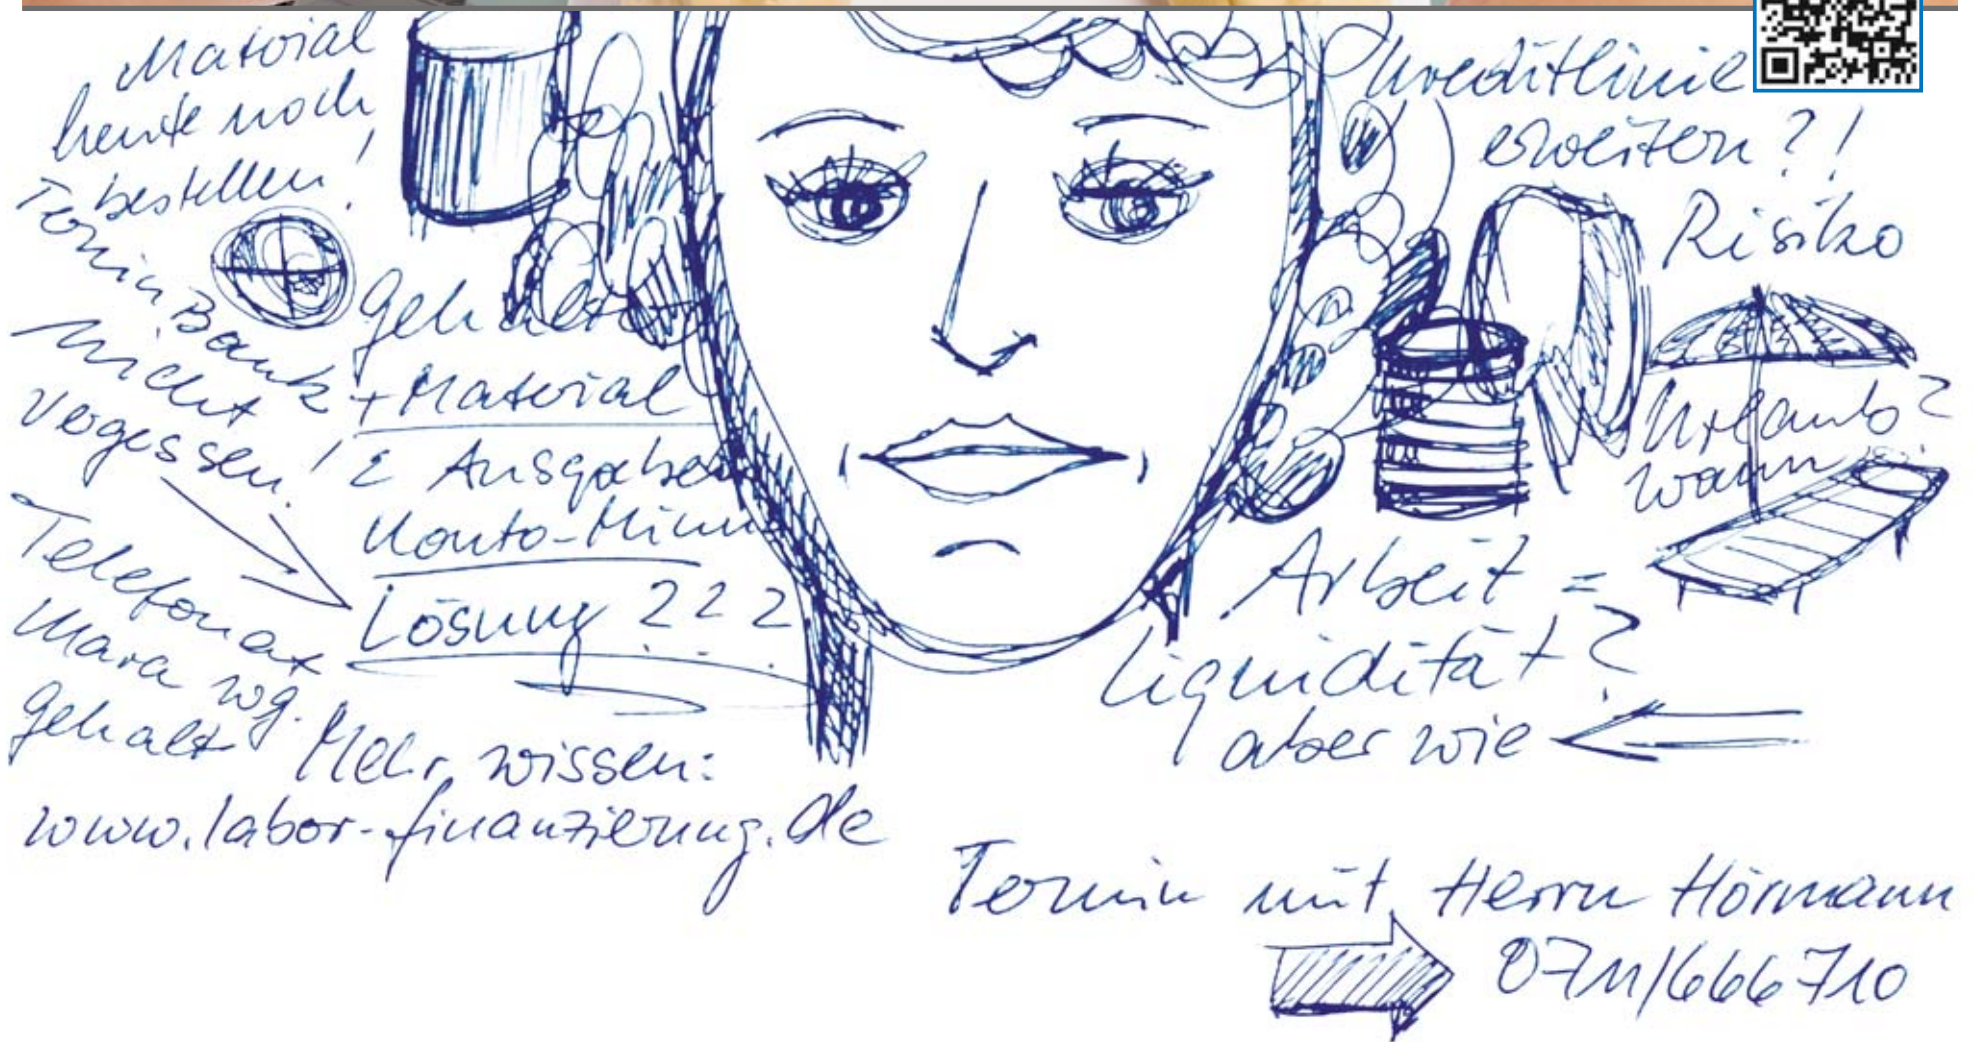 Material
heute noch
bestellen!
Termin Bank
nicht
vergessen!
Gehalt
+ Material
Σ Ausgaben
Konto-Minus
Lösung ???
Telefonat
Mara wg.
Gehalt
Mehr wissen:
www.labor-finanzierung.de
Kreditlinie
erweitern?!
Risiko
Urlaub?
wann
Arbeit =
Liquidität?
aber wie
Termin mit Herrn Hörmann
0711/666710